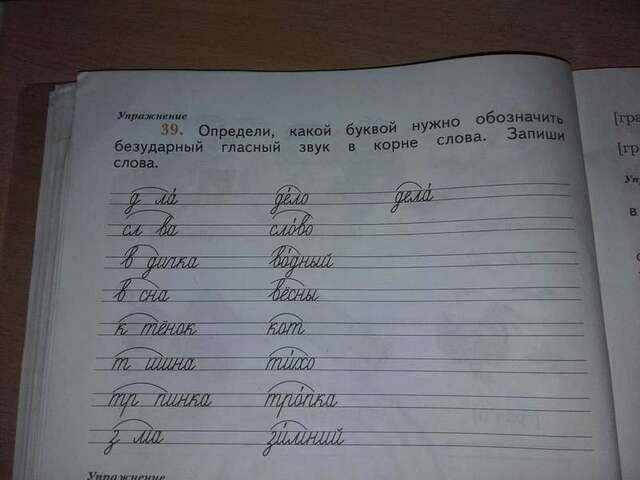 Упражнение
39. Определи, какой буквой нужно обозначить
безударный гласный звук в корне слова. Запиши
слова.
д ла́ де́ло дела́
сл ва сло́во
в дичка во́дный
в сна вёсны
к тёнок кот
т шина ти́хо
тр пинка тро́пка
з ма зи́мний
Упражнение
[гра
[гр
Уп
в